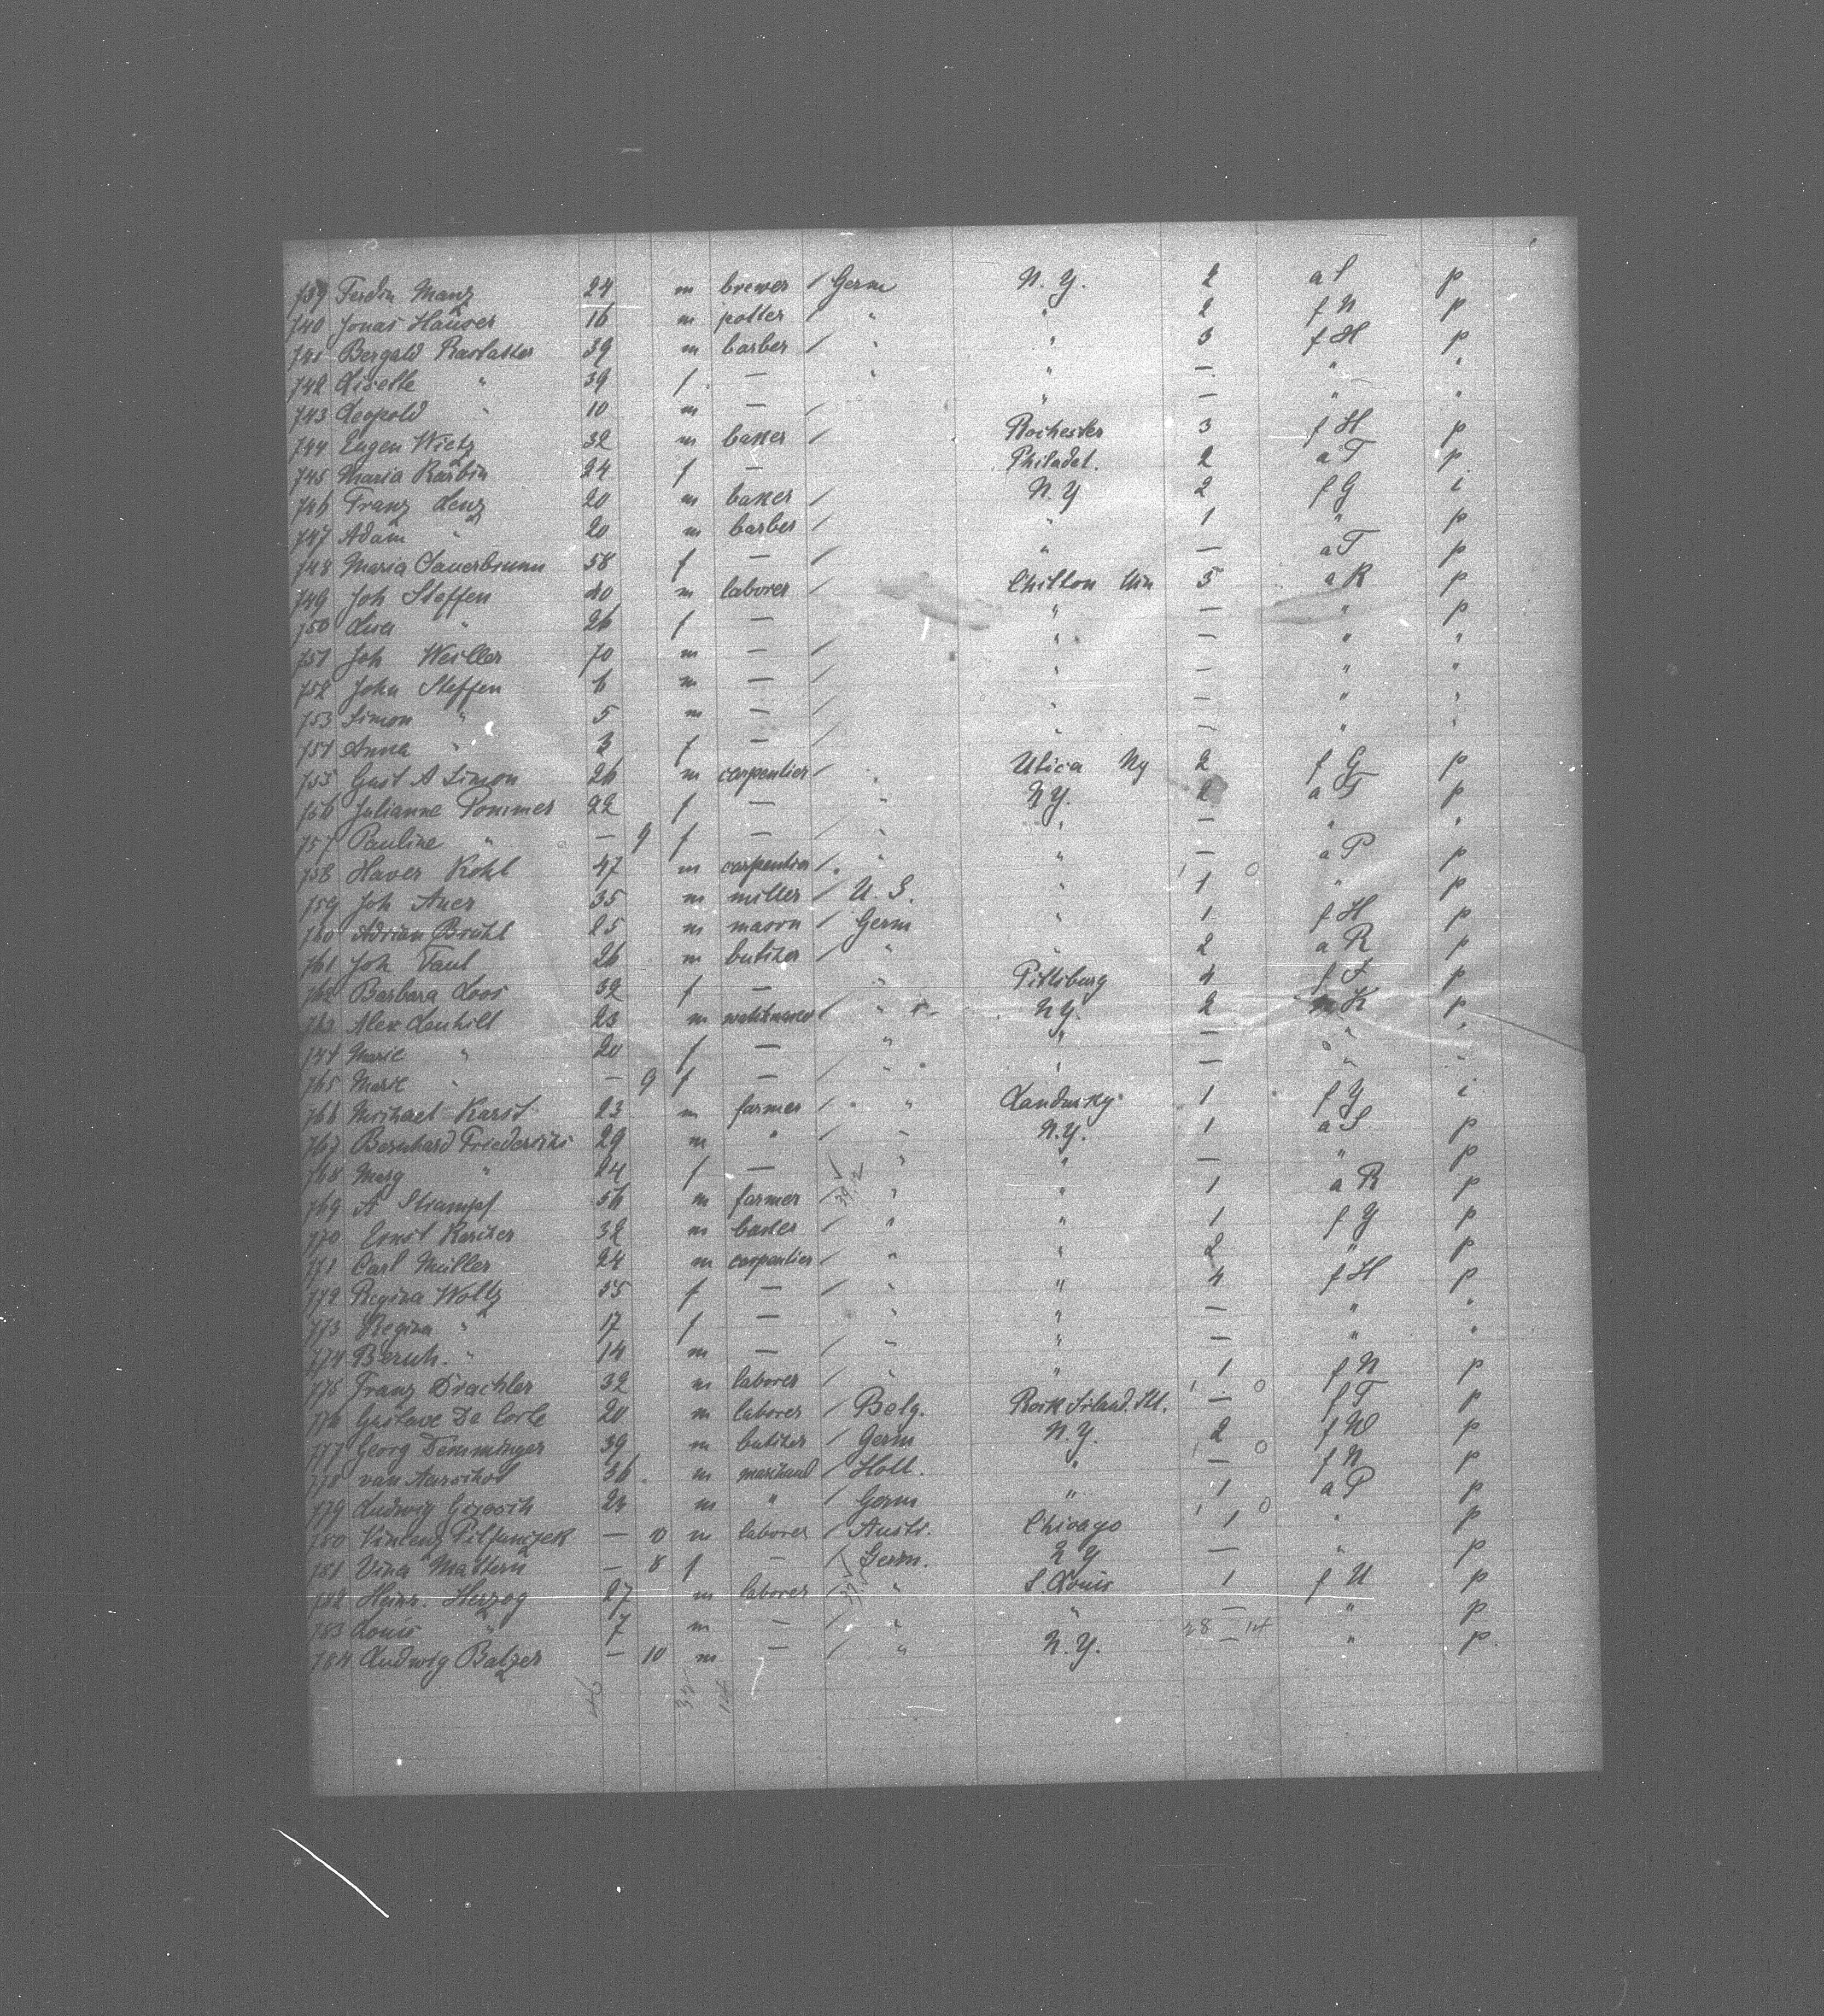 739 Ferdin Manz 24 m brewer / Germ N.Y. 2 a S p
740 Jonas Hauser 16 m potter / " " 2 f N p
741 Bergald Rastatter 39 m barber / " " 3 f H p
742 Lisette " 39 f — " " — " "
743 Leopold " 10 m — / " — " "
744 Eugen Wietz 32 m baker / Rochester 3 f H p
745 Maria Karbin 24 f — Philadel. 2 a T p
746 Franz Lenz 20 m baker / N.Y 2 f G i
747 Adam " 20 m barber / " 1 " p
748 Maria Sauerbrunn 58 f — / " — a T p
749 Joh Steffen 40 m laborer / Chilton Win 5 a R p
750 Lisa " 26 f — " — " p
751 Joh Weiller 70 m — / " — " "
752 John Steffen 6 m — / " — " "
753 Simon " 5 m — / " — " "
754 Anna " 3 f — / " — " "
755 Gust A Simon 26 m carpentier / " Utica Ny 2 f G p
756 Julianne Pommer 22 f — " N.Y. 2 a T p
757 Pauline " — 9 f — / " " — " "
758 Xaver Kohl 47 m carpentier / " " — a P p
759 Joh Auer 35 m miller / U.S. " 1 " p
760 Adrian Brühl 25 m mason / Germ " 1 f H p
761 Joh Faul 26 m butcher / " " 2 a R p
762 Barbara Loos 32 f — " Pittsburg 4 f p
763 Alex 23 m / " N.Y. 2 K p
764 Marie " 20 f — " " — " "
765 Marie " — 9 f — / " " — " "
766 Michael Karst 23 m farmer / " Sandusky 1 f G i
767 Bernhard Friederichs 29 m " / " N.Y. 1 a S p
768 Marg " 24 f — " " — " p
769 A Strampf 56 m farmer / " " 1 a R p
770 Ernst Karcher 32 m baker / " " 1 f G p
771 Carl Müller 24 m carpentier / " " 2 " p
772 Regina Woltz 55 f — / " " 4 f H p
773 Regina " 17 f — " " — " "
774 Bernh. " 14 m — / " " — " "
775 Franz Drachler 32 m laborer / " " 1 f N p
776 Gustave De Corte 20 m laborer / Belg. Rock Island. Ill. — f T p
777 Georg Demminger 39 m butcher / Germ N.Y. 2 f W p
778 van 36 m / Holl. " — f N p
779 Ludwig 24 m " / Germ " 1 a P p
780 Vincenz — 0 m laborer / Austr. Chicago 1 " p
781 Vina Mattern — 8 f — / Germ. N Y — " p
782 Heinr. Herzog 27 m laborer / " S. Louis 1 f U p
783 Louis " 7 m — / " " — " p
28 14
784 Ludwig Balzer — 10 m — / " N.Y. — " p
46 14